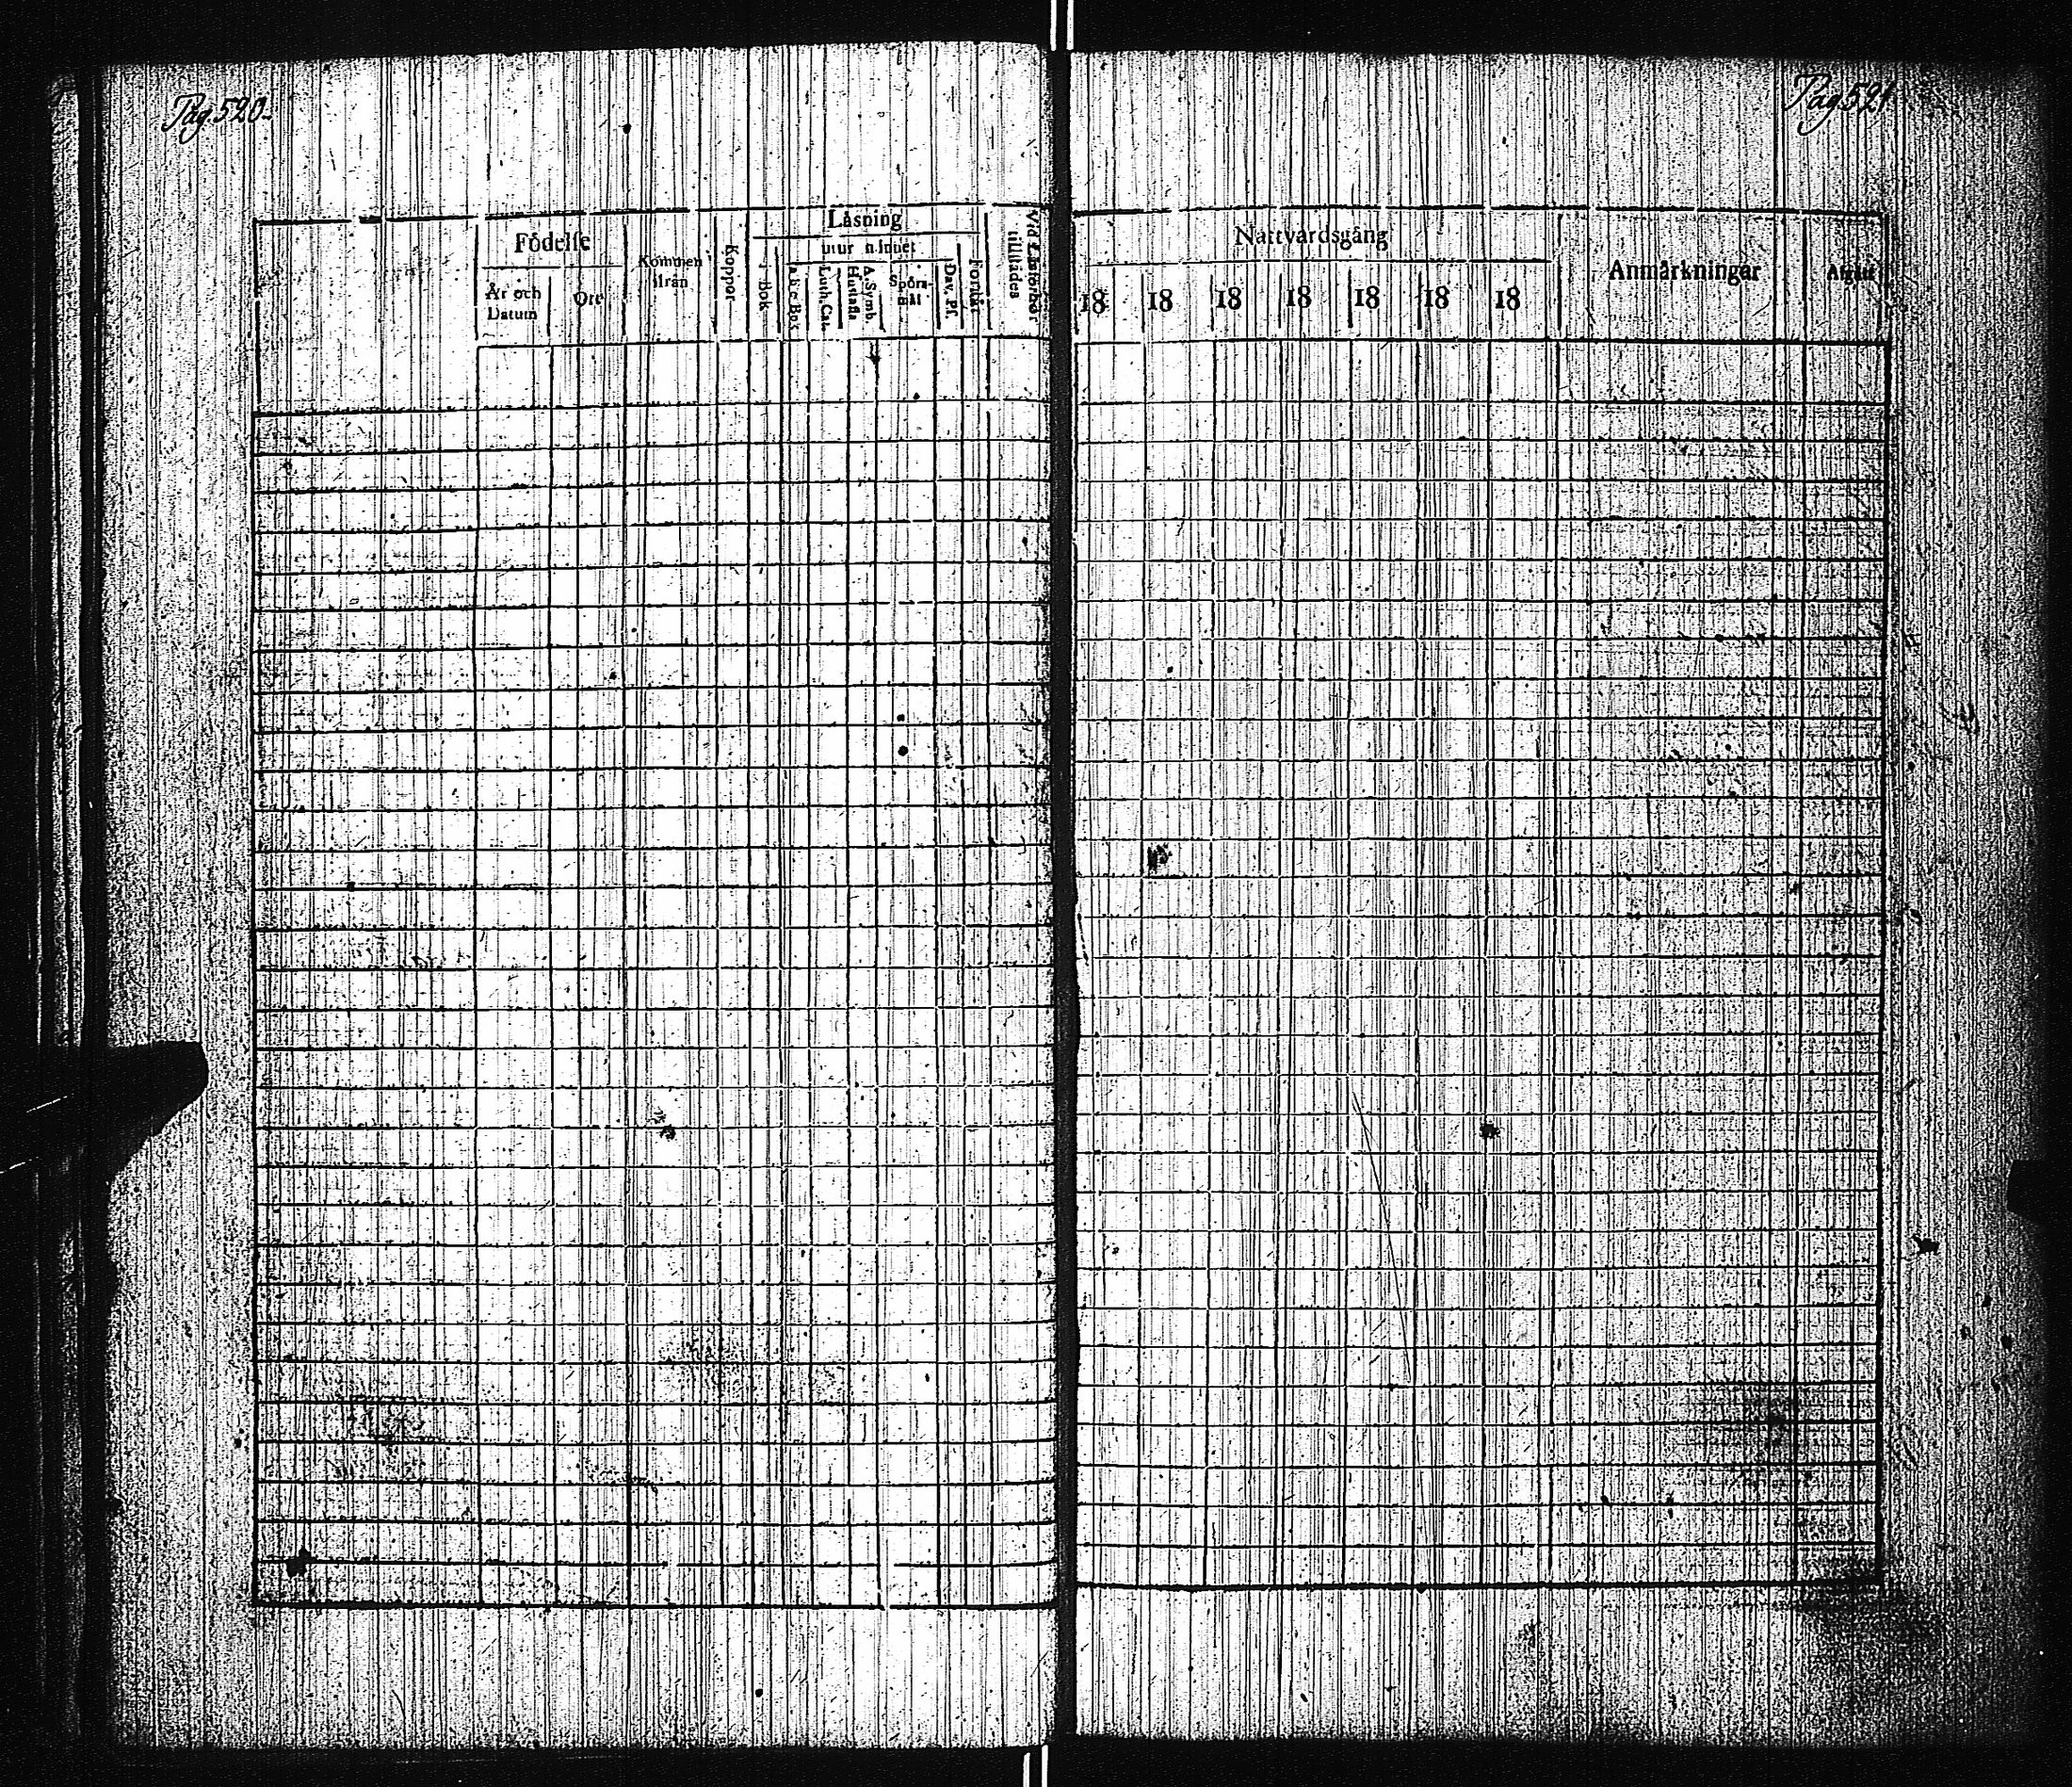 Pag 520.
Födelse
År och Datum
Ort
Kommen ifrån
Koppor
Läsning
utur minnet
i Bok
a b c Bok
Luth. Cat.
Hustafla
A. Symb.
Spörs-mål
Dav. Ps.
Förstår
Vid Läsförhör tillstädes
Pag 521
Nattvardsgång
18 18 18 18 18 18 18
Anmärkningar
Afgått